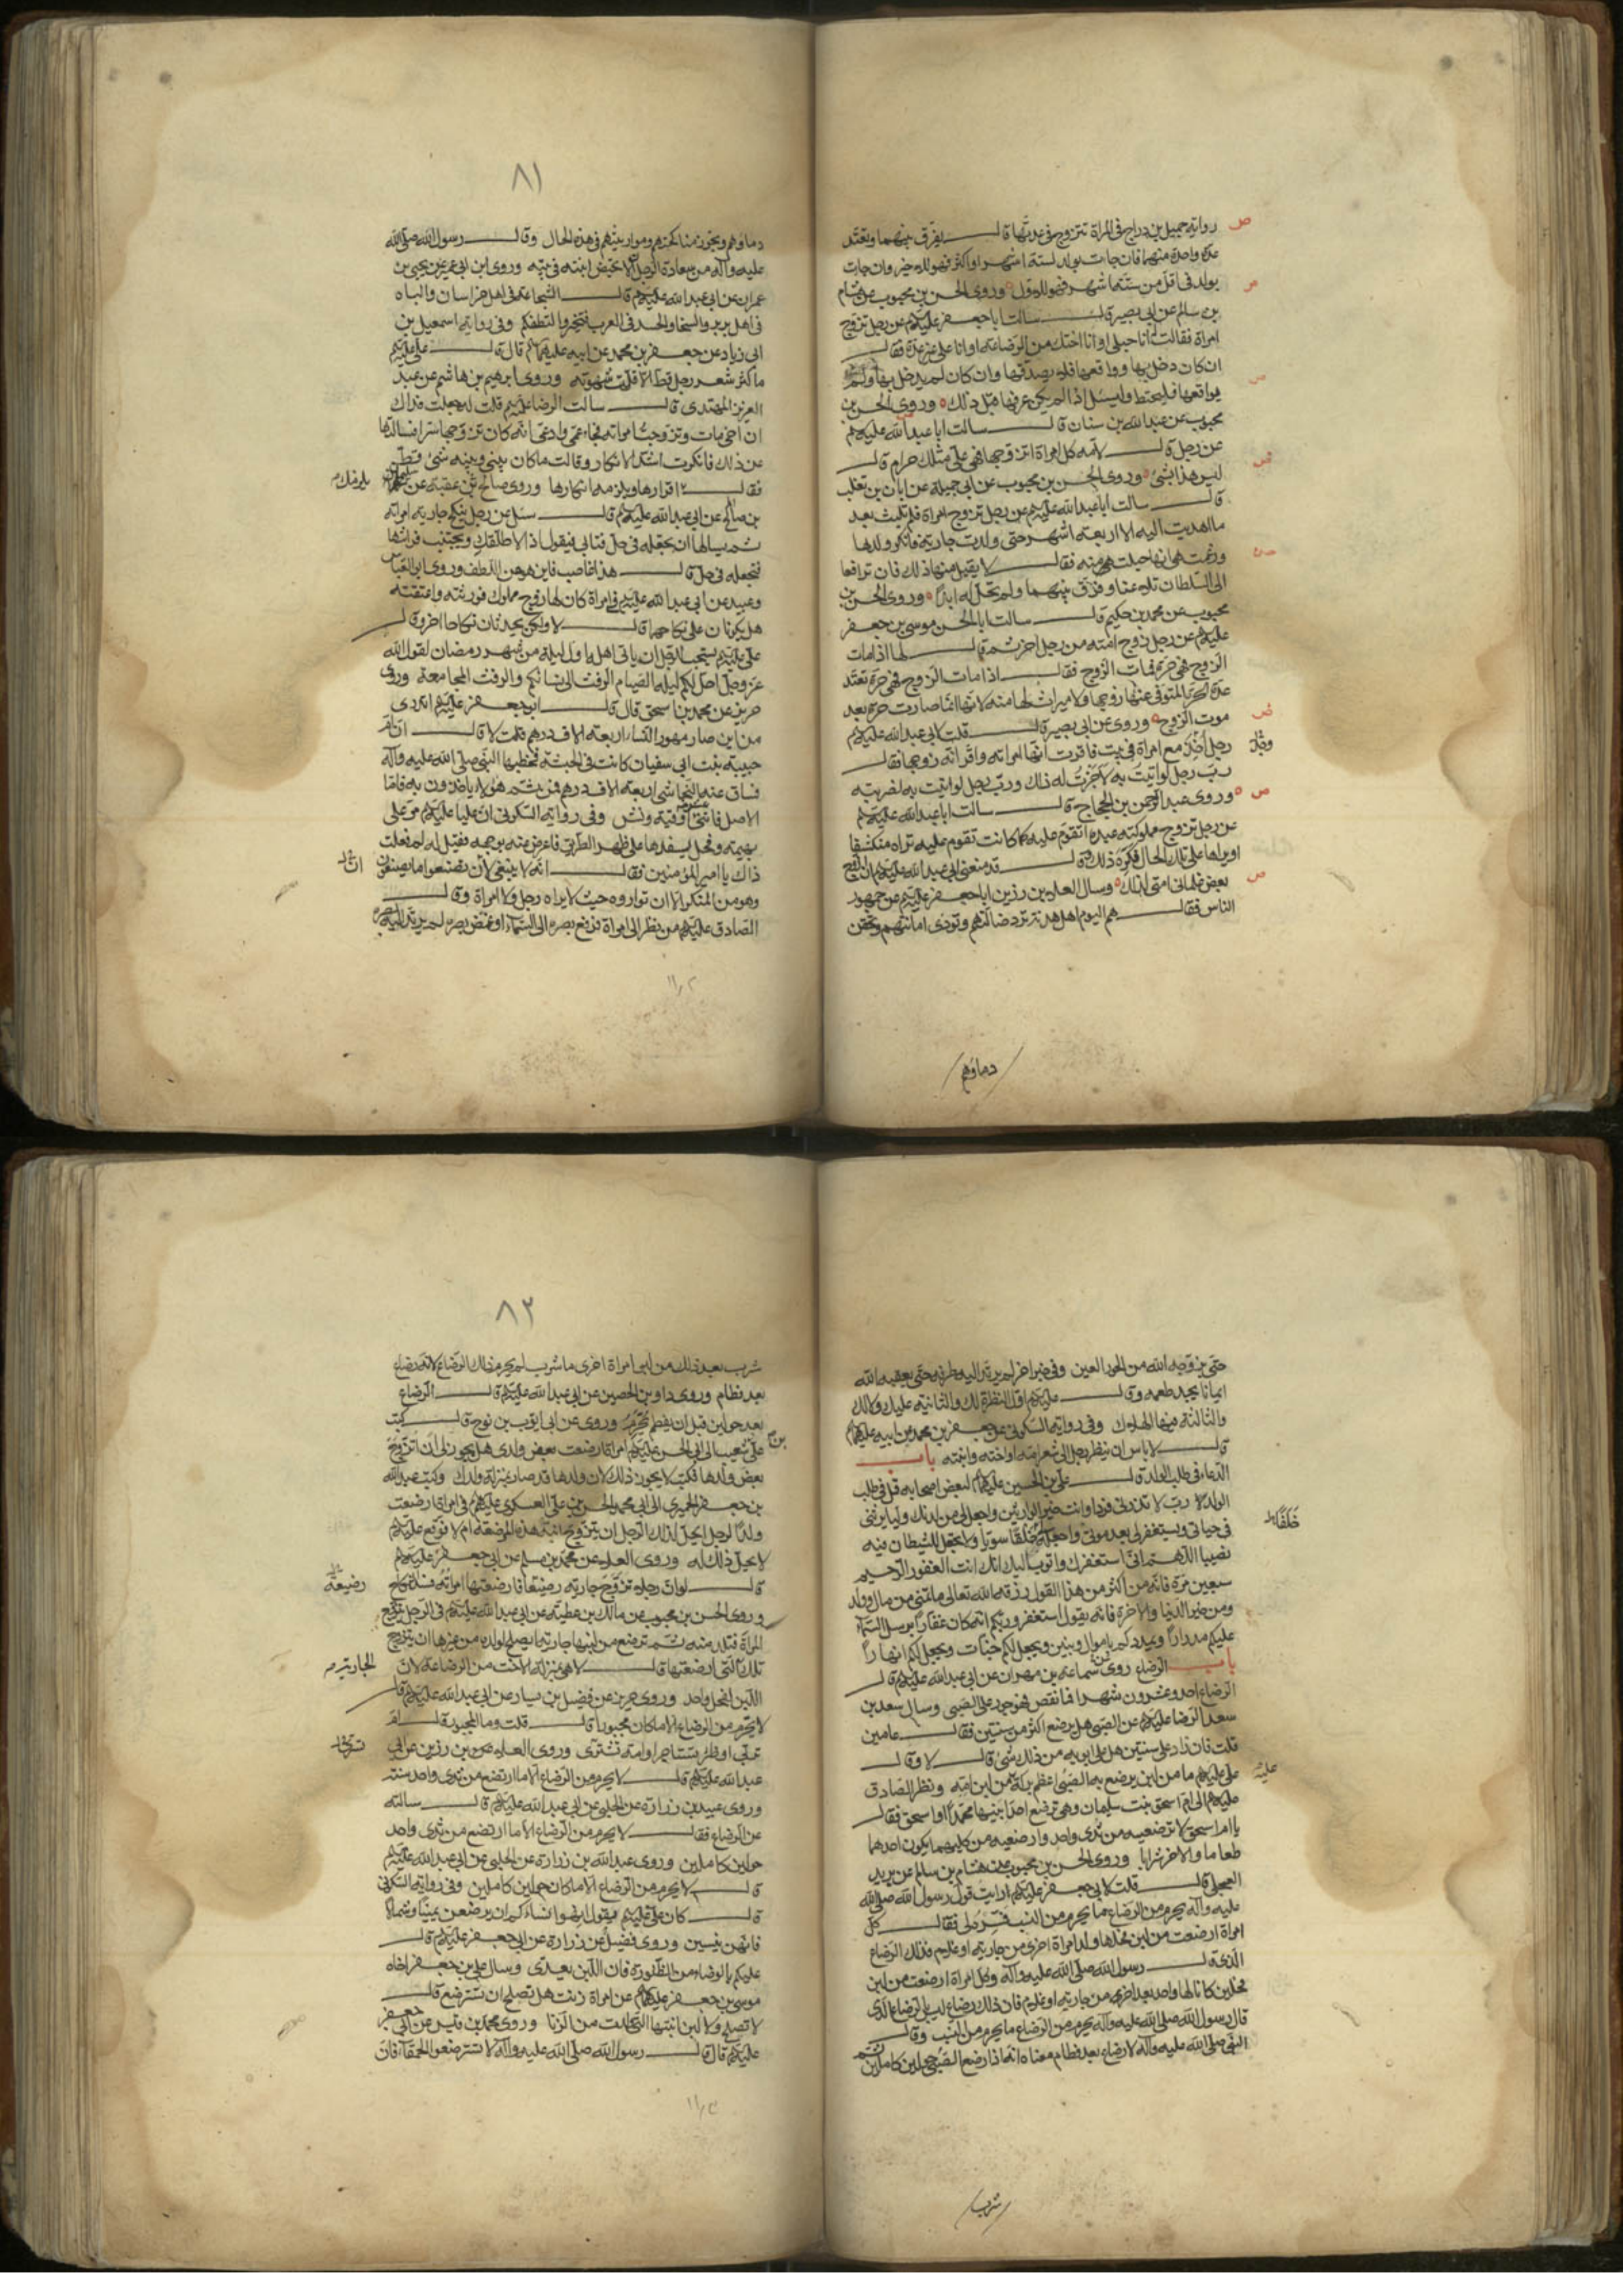 رواية جميل بن دراج في المرأة تتزوج في عدتها قال يفرق بينهما وتعتد
عدة واحدة منهما فان جاءت بولد لستة اشهر او اكثر فهو للاخير وان جاءت
بولد في اقل من ستة اشهر فهو للاول وروى الحسن بن محبوب عن هشام
بن سالم عن ابي بصير قال سالت ابا جعفر عليه السلام عن رجل تزوج
امراة فقالت انا حبلى او انا اختك من الرضاعة او انا على غير عدة فقال
ان كان دخل بها وواقعها فلا يصدقها وان كان لم يدخل بها ولم
يواقعها فليحتط وليسئل اذا لم يكن عرفها قبل ذلك وروى الحسن بن
محبوب عن عبد الله بن سنان قال سالت ابا عبد الله عليه السلام
عن رجل قال لامه كل امراة اتزوجها فهي علي مثلك حرام قال
ليس هذا بشئ وروى الحسن بن محبوب عن ابي جميلة عن ابان بن تغلب
قال سالت ابا عبد الله عليه السلام عن رجل تزوج امراة فلم تلبث بعد
ما اهديت اليه الا اربعة اشهر حتى ولدت جارية فانكر ولدها
وزعمت هي انها حبلت منه فقال لا يقبل منها ذلك فان ترافعا
الى السلطان تلاعنا وفرق بينهما ولم تحل له ابدا وروى الحسن بن
محبوب عن محمد بن حكيم قال سالت ابا الحسن موسى بن جعفر
عليه السلام عن رجل زوج امته من رجل اخر ثم قال لها اذا مات
الزوج فهي حرة فمات الزوج فقال اذا مات الزوج فهي حرة تعتد
عدة الحرة المتوفى عنها زوجها ولا ميراث لها منه لانها انما صارت حرة بعد
موت الزوج وروى عن ابي بصير قال قلت لابي عبد الله عليه السلام
رجل اخذ مع امراة في بيت فاقرت انها امراته واقر انه زوجها فقال
رب رجل لو اتيت به لاجزت له ذلك ورب رجل لو اتيت به لضربته
وروى عبد الرحمن بن الحجاج قال سالت ابا عبد الله عليه السلام
عن رجل تزوج مملوكته عبده اتقوم عليه كما كانت تقوم عليه تراه منكشفا
او يراها على تلك الحال فكره ذلك وقال قد منعني ابي عبد الله عليه السلام ان ازوج
بعض غلماني امتي لذلك وسال العلاء بن رزين ابا جعفر عليه السلام عن جمهور
الناس فقال هم اليوم اهل هدنة ترد ضالتهم وتؤدى امانتهم وتحقن
دماؤهم
٨١
دماؤهم وتجوز مناكحتهم ومواريثهم في هذه الحال وقال رسول الله صلى الله
عليه وآله من سعادة الرجل ان لا تحيض ابنته في بيته وروى ابن ابي عمير عن يحيى بن
عمران عن ابي عبد الله عليه السلام قال الشجاعة في اهل خراسان والباه
في اهل بربر والسخاء والحسد في العرب فتخيروا لنطفكم وفي رواية اسمعيل بن
ابي زياد عن جعفر بن محمد عن ابيه عليهما السلام قال قال علي عليه السلام
ما كثر شعر رجل قط الا قلت شهوته وروى ابرهيم بن هاشم عن عبد
العزيز المهتدى قال سالت الرضا عليه السلام قلت له جعلت فداك
ان اخي مات وتزوجت امراته فجاء عمي وادعى انه كان تزوجها سرا فسالتها
عن ذلك فانكرت اشد الانكار وقالت ما كان بيني وبينه شئ قط
فقال يلزمك اقرارها ويلزمه انكارها وروى صالح بن عقبة عن سليمان
بن صالح عن ابي عبد الله عليه السلام قال سئل عن رجل ينكح جارية امراته
ثم يسالها ان تجعله في حل فتابى فيقول اذا لاطلقنك ويجتنب فراشها
فتجعله في حل قال هذا غاصب فاين هو من اللطف وروى ابو العباس
وعبيد عن ابي عبد الله عليه السلام في امراة كان لها زوج مملوك فورثته واعتقته
هل يكونان على نكاحهما قال لا ولكن يجددان نكاحا اخر وقال
علي عليه السلام يستحب للرجل ان ياتي اهله اول ليلة من شهر رمضان لقول الله
عز وجل احل لكم ليلة الصيام الرفث الى نسائكم والرفث المجامعة وروى
حريز عن محمد بن اسحق قال قال ابو جعفر عليه السلام اتدري
من اين صار مهور النساء اربعة الاف درهم قلت لا قال ان ام
حبيبة بنت ابي سفيان كانت في الحبشة فخطبها النبي صلى الله عليه وآله
فساق عنه النجاشي اربعة الاف درهم فمن ثم هؤلاء ياخذون به فاما
الاصل فاثنتي عشرة اوقية ونش وفي رواية السكوني ان عليا عليه السلام مر على
بهيمة وفحل يسفدها على ظهر الطريق فاعرض عنه بوجهه فقيل له لم فعلت
ذاك يا امير المؤمنين فقال انه لا ينبغي ان تصنعوا ما يصنعون
وهو من المنكر الا ان تواروه حيث لا يراه رجل ولا امراة وقال
الصادق عليه السلام من نظر الى امراة فرفع بصره الى السماء او غمض بصره لم يرتد اليه بصره
حتى يزوجه الله من الحور العين وفي خبر اخر لم يرتد اليه طرفه حتى يعقبه الله
ايمانا يجد طعمه وقال عليه السلام اول النظرة لك والثانية عليك ولا لك
والثالثة فيها الهلاك وفي رواية السكوني عن جعفر بن محمد عن ابيه عليهما السلام
قال لا باس ان ينظر الرجل الى شعر امه او اخته وابنته باب
الدعاء في طلب الولد قال علي بن الحسين عليهما السلام لبعض اصحابه قل في طلب
الولد رب لا تذرني فردا وانت خير الوارثين واجعل لي من لدنك وليا يرثني
في حياتي ويستغفر لي بعد موتي واجعله خلقا سويا ولا تجعل للشيطان فيه
نصيبا اللهم اني استغفرك واتوب اليك انك انت الغفور الرحيم
سبعين مرة فانه من اكثر من هذا القول رزقه الله تعالى ما تمنى من مال وولد
ومن خير الدنيا والاخرة فانه يقول استغفروا ربكم انه كان غفارا يرسل السماء
عليكم مدرارا ويمددكم باموال وبنين ويجعل لكم جنات ويجعل لكم انهارا
باب الرضاع روى سماعة بن مهران عن ابي عبد الله عليه السلام قال
الرضاع احد وعشرون شهرا فما نقص فهو جور على الصبي وسال سعد بن
سعد الرضا عليه السلام عن الصبي هل يرضع اكثر من سنتين فقال عامين
قلت فان زاد على سنتين هل على ابويه من ذلك شئ قال لا وقال
علي عليه السلام ما من لبن يرضع به الصبي اعظم بركة عليه من لبن امه ونظر الصادق
عليه السلام الى ام اسحق بنت سليمان وهي ترضع احد ابنيها محمدا او اسحق فقال
يا ام اسحق لا ترضعيه من ثدي واحد وارضعيه من كليهما يكون احدهما
طعاما والاخر شرابا وروى الحسن بن محبوب عن هشام بن سالم عن بريد
العجلي قال قلت لابي جعفر عليه السلام ارايت قول رسول الله صلى الله
عليه وآله يحرم من الرضاع ما يحرم من النسب فسر لي فقال كل
امراة ارضعت من لبن فحلها ولد امراة اخرى من جارية او غلام فذلك الرضاع
الذي قال رسول الله صلى الله عليه وآله وكل امراة ارضعت من لبن
فحلين كانا لها واحدا بعد اخر من جارية او غلام فان ذلك رضاع ليس بالرضاع الذي
قال رسول الله صلى الله عليه وآله يحرم من الرضاع ما يحرم من النسب وقال
النبي صلى الله عليه وآله لا رضاع بعد فطام معناه انه اذا رضع الصبي حولين كاملين ثم
شرب
٨٢
شرب بعد ذلك من لبن امراة اخرى ما شرب لم يحرم ذلك الرضاع لانه رضاع
بعد فطام وروى داود بن الحصين عن ابي عبد الله عليه السلام قال الرضاع
بعد حولين قبل ان يفطم محرم وروى عن ايوب بن نوح قال كتب
علي بن شعيب الى ابي الحسن عليه السلام امراة ارضعت بعض ولدي هل يجوز لي ان اتزوج
بعض ولدها فكتب لا يجوز ذلك لان ولدها قد صار بمنزلة ولدك وكتب عبد الله
بن جعفر الحميري الى ابي محمد الحسن بن علي العسكري عليهما السلام في امراة ارضعت
ولدا لرجل ايحل لذلك الرجل ان يتزوج ابنة هذه المرضعة ام لا فوقع عليه السلام
لا يحل ذلك له وروى العلاء عن محمد بن مسلم عن ابي جعفر عليه السلام
قال لو ان رجلا تزوج جارية رضيعة فارضعتها امراته فسد النكاح
وروى الحسن بن محبوب عن مالك بن عطية عن ابي عبد الله عليه السلام في الرجل يتزوج
المراة فتلد منه ثم ترضع من لبنها جارية ايصلح لولده من غيرها ان يتزوج
تلك الجارية التي ارضعتها قال لا هي بمنزلة الاخت من الرضاعة لان
اللبن لفحل واحد وروى حريز عن فضيل بن يسار عن ابي عبد الله عليه السلام قال
لا يحرم من الرضاع الا ما كان مجبورا قال قلت وما المجبور قال ام
تربي او ظئر تستاجر او امة تشترى وروى العلاء بن رزين عن ابي
عبد الله عليه السلام قال لا يحرم من الرضاع الا ما ارتضع من ثدي واحد سنة
وروى عبيد بن زرارة عن الحلبي عن ابي عبد الله عليه السلام قال سالته
عن الرضاع فقال لا يحرم من الرضاع الا ما ارتضع من ثدي واحد
حولين كاملين وروى عبد الله بن زرارة عن الحلبي عن ابي عبد الله عليه السلام
قال لا يحرم من الرضاع الا ما كان حولين كاملين وفي رواية السكوني
قال كان علي عليه السلام يقول انهوا نساءكم ان يرضعن يمينا وشمالا
فانهن ينسين وروى فضيل عن زرارة عن ابي جعفر عليه السلام قال
عليكم بالوضاء من الظئورة فان اللبن يعدى وسال علي بن جعفر اخاه
موسى بن جعفر عليهما السلام عن امراة زنت هل تصلح ان تسترضع قال
لا تصلح ولا لبن ابنتها التي ولدت من الزنا وروى محمد بن قيس عن ابي جعفر
عليه السلام قال قال رسول الله صلى الله عليه وآله لا تسترضعوا الحمقاء فان